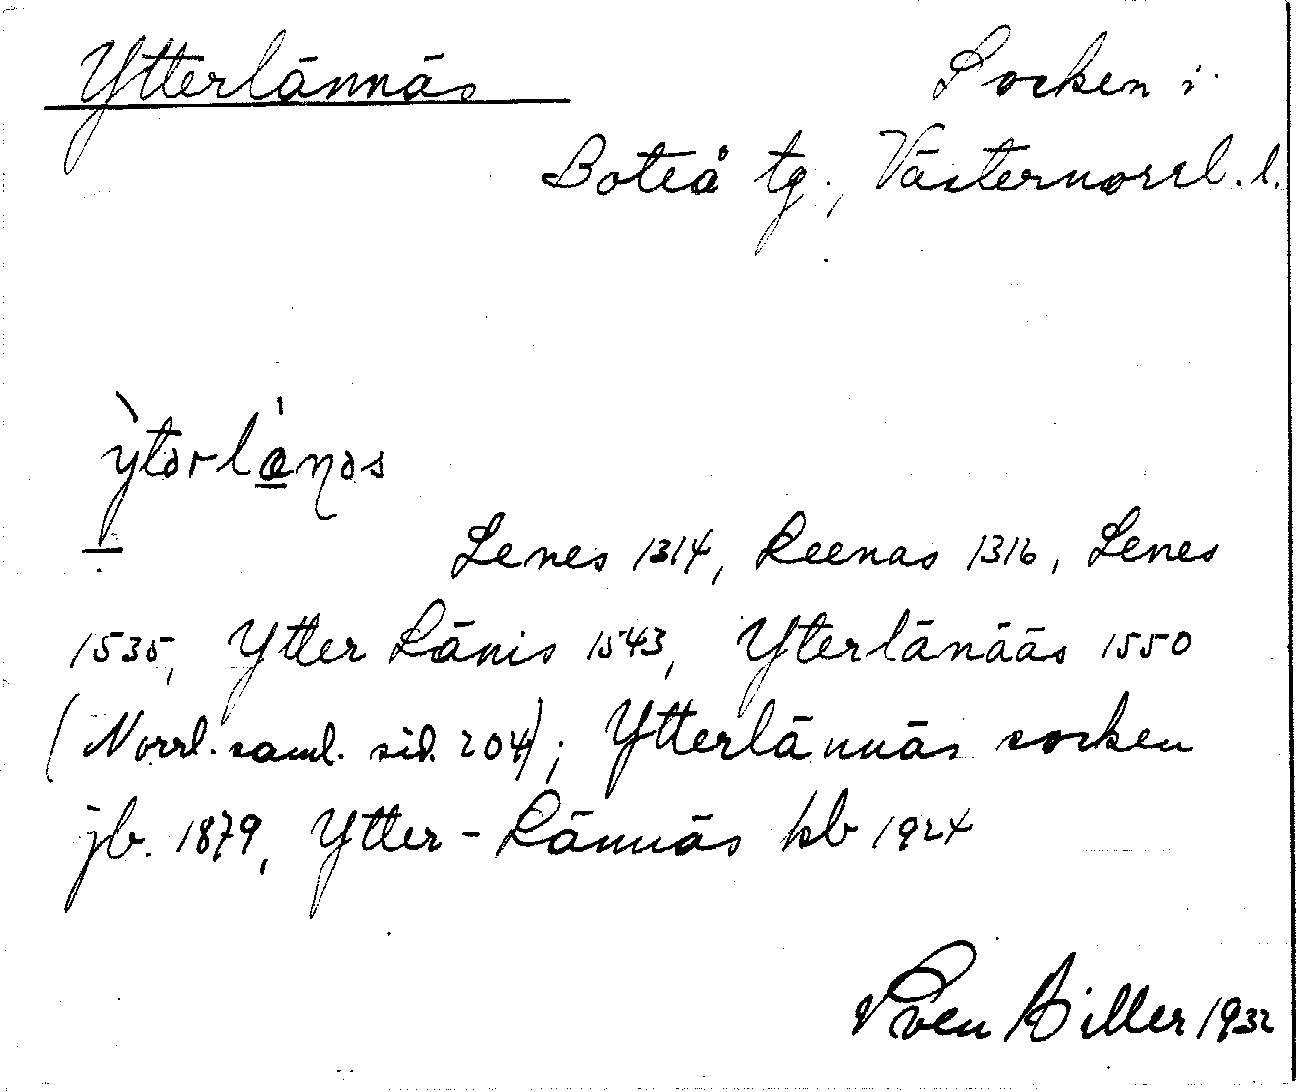 Ytterlännäs
Socken i
Boteå tg., Västernorrl. l.
ỳtərlánəs
Lenes 1314, Leenas 1316, Lenes
1535, Ytter Länis 1543, Yterlänääs 1550
(Norrl. saml. sid. 204); Ytterlännäs socken
jb. 1879, Ytter-Lännäs kb 1924
Sven Hiller 1932